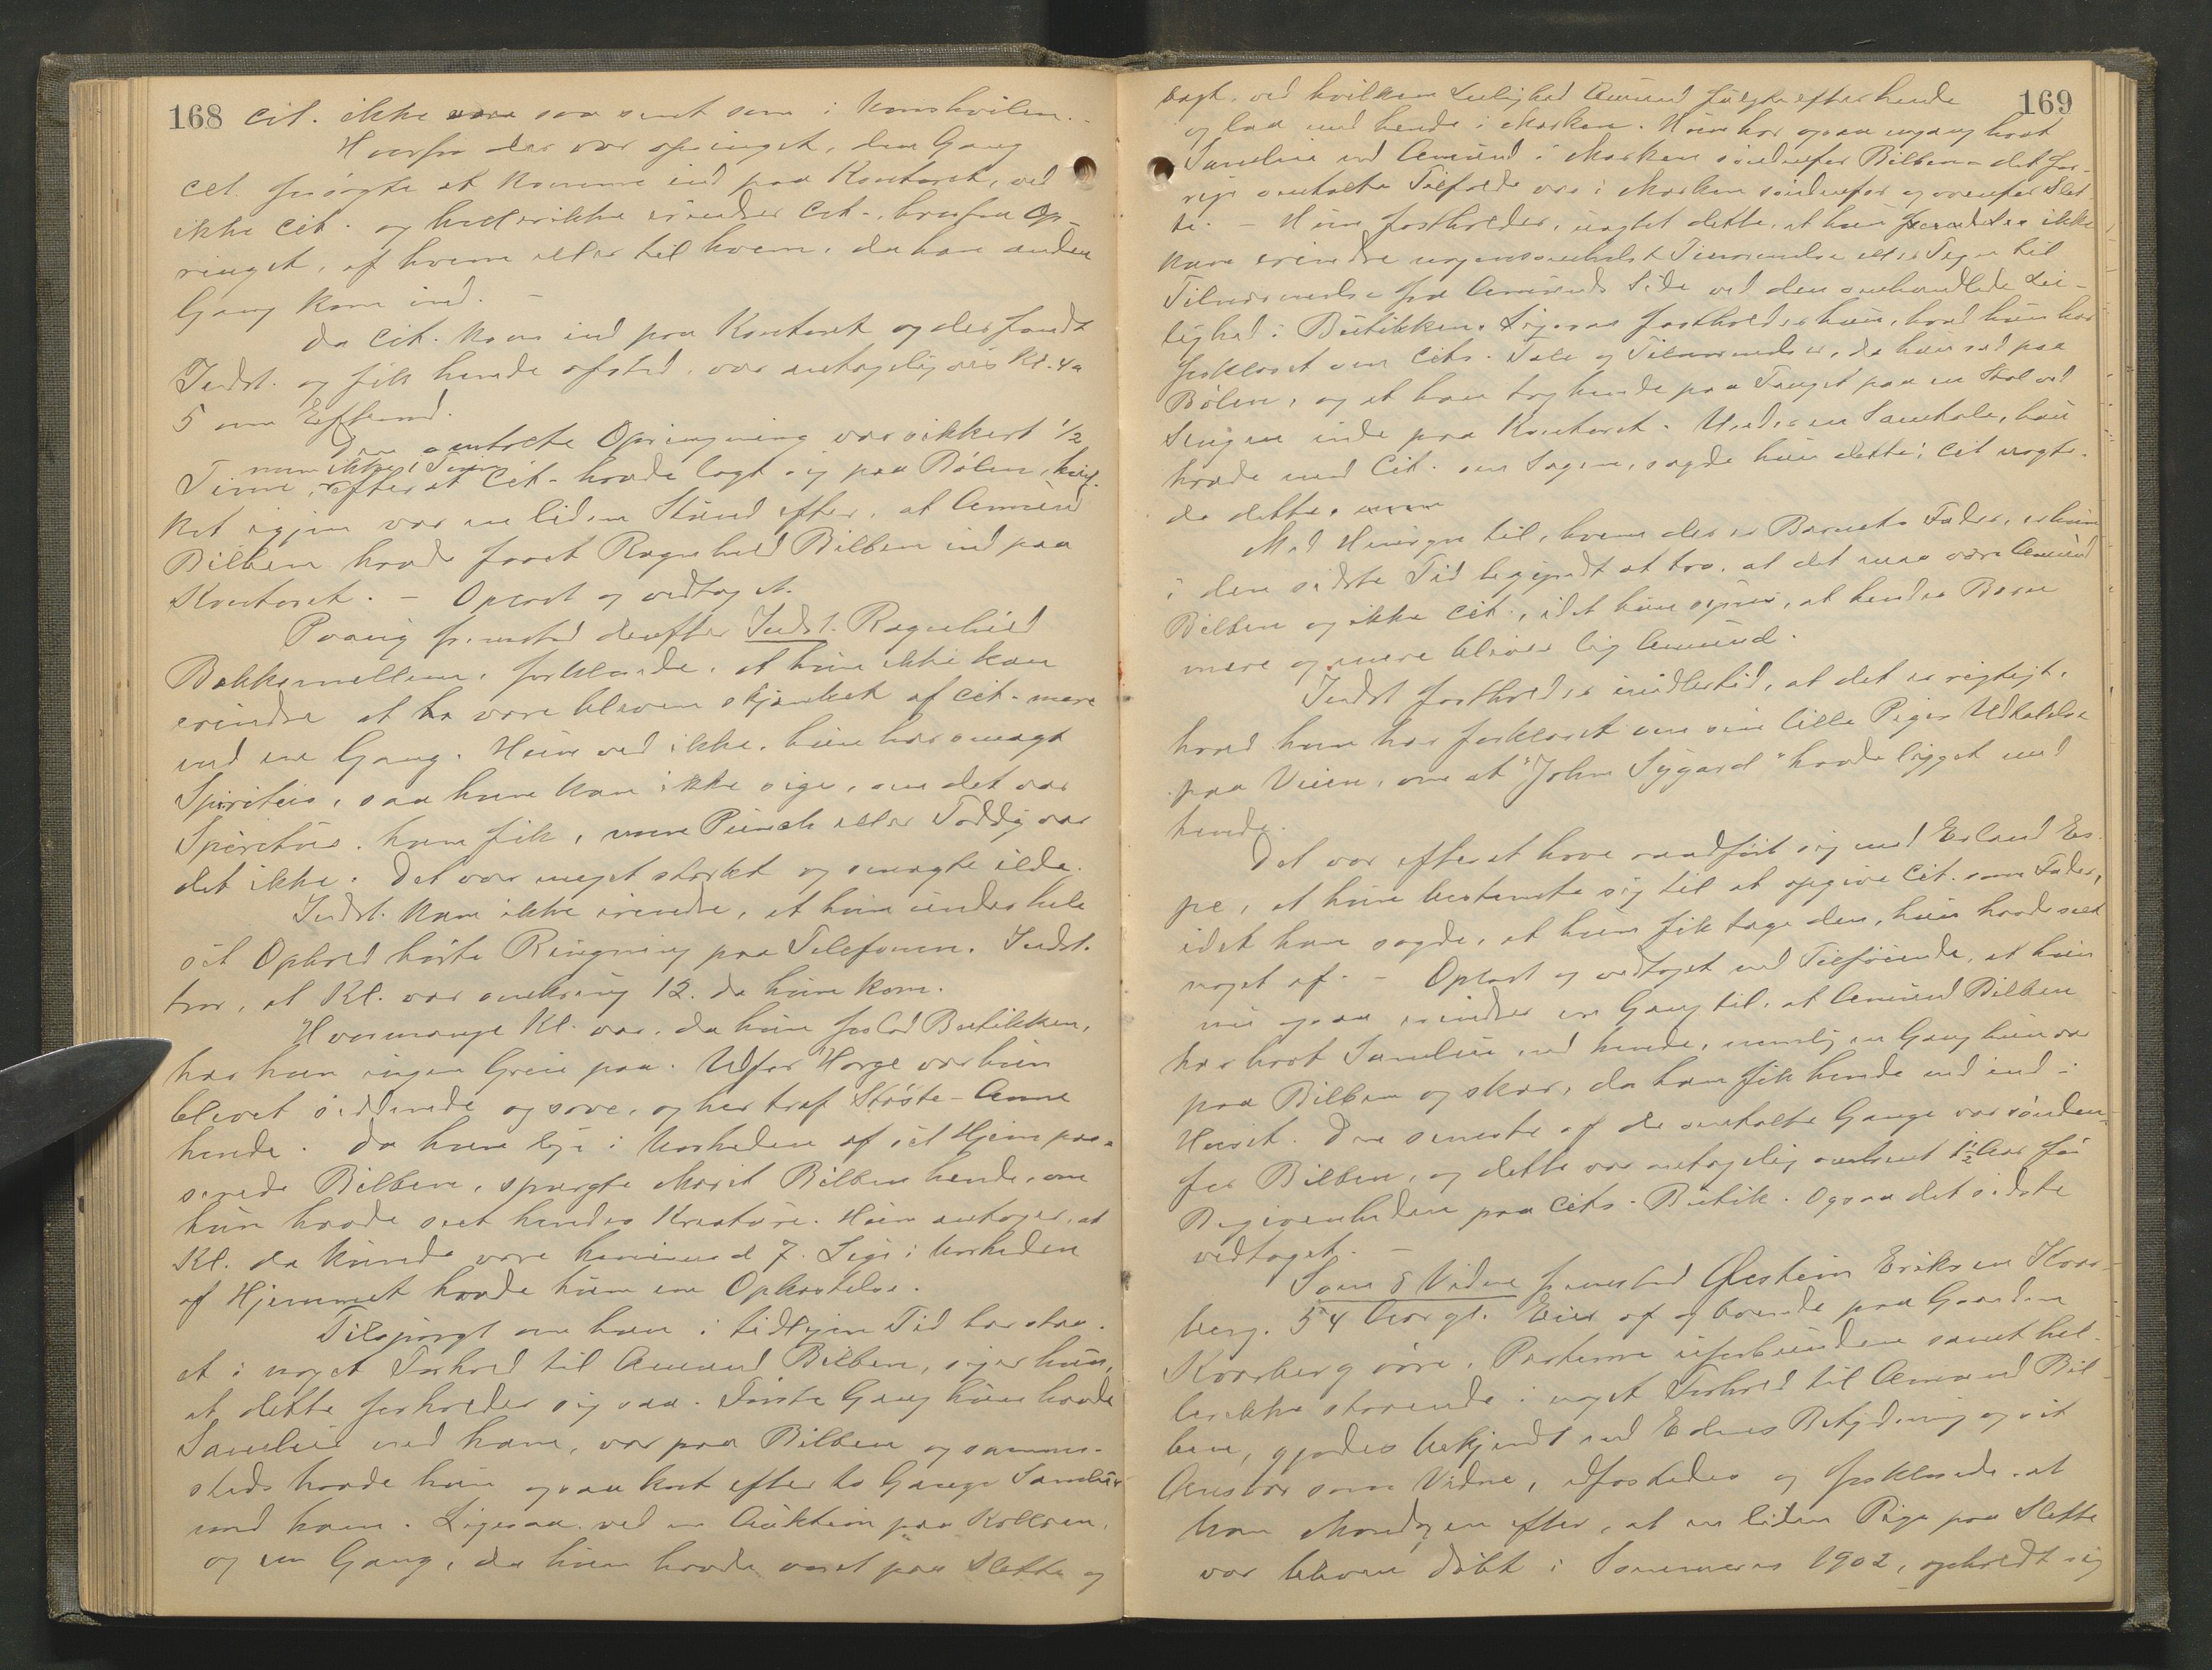 168
cit. ikke saa sent som i Konshvilen.
Hvorfra der var opringet, den Gang
cit. forsøgte at komme ind paa Kontoret, ved
ikke cit. og hellerikke erindrer cit., hvorfra Op-
ringet, af hvem eller til hvem, da han anden
Gang kom ind. -
Da cit. kom ind paa Kontoret og der fandt
Indst. og fik hende afsted, var antagelig vis Kl. 4 a
5 om Efterm.
Den omtalte Opringning var sikkert 1/2
Time, men ikke 1 Time, efterat cit. havde lagt sig paa Bølen, hvil-
ket igjen var en liden Stund efter, at Amund
Bilben havde faaet Ragnhild Bilben ind paa
Kontoret. - Oplæst og vedtaget.
Paany fremstod derefter Indst. Ragnhild
Bakkemellem, forklarede, at hun ikke kan
erindre at ha være bleven skjænket af cit. mere
end en Gang. Hun ved ikke, hun har smagt
Spiritus, saa hun kan ikke sige, om det var
Spiritus, hun fik, men Punch eller Toddy var
det ikke. Det var meget stærkt og smagte ilde.
Indst. kan ikke erindre, at hun under hele
sit Ophold hørte Ringning paa Telefonen. Indst.
tror, at Kl. var omkring 12. da hun kom.
Hvormange Kl. var, da hun forlod Butikken,
har hun ingen Greie paa. Udfor Horge var hun
blevet siddende og sove, og her traf Støste-Anne
hende. Da hun lige i Nærheden af sit Hjem pas-
serede Bilben, spurgte Marit Bilben hende, om
hun havde seet hendes Kreature. Hun antager, at
Kl. da kunde være henimod 7. Lige i Nærheden
af Hjemmet havde hun en Opkastelse.
Tilspurgt om hun i tidligere Tid har staa-
et i noget Forhold til Amund Bilben, siger hun,
at dette forholder sig saa. Første Gang hun havde
Samleie med ham, var paa Bilben og samme-
steds havde hun ogsaa kort efter to Gange Samleie
med ham. Ligesaa ved en Auktion paa Kolleen,
og en Gang, da hun havde været paa Slette og
169
bagt, ved hvilken Leilighed Amund fulgte efter hende
og laa med hende i Marken. Hun har ogsaa engang havt
Samleie med Amund i Marken søndenfor Bilben - det for-
rige omtalte Tilfælde var i Marken søndenfor og ovenfor Slet-
te. - Hun fastholder, uagtet dette, at hun fremdeles ikke
kan erindre nogensomhelst Tilnærmelse eller Tegn til
Tilnærmelse fra Amunds Side ved den omhandlede Lei-
lighed i Butikken. Ligesaa fastholder hun, hvad hun har
forklaret om cits. Tale og Tilnærmelser, da hun sad paa
Bølen, og at han tog hende paa Fanget paa en Stol ved
Sengen inde paa Kontoret. Under en Samtale, hun
havde med Cit. om Sagen, sagde hun dette; cit nægte-
de dette.
Med Hensyn til, hvem der er Barnets Fader, er hun
i den sidste Tid begyndt at tro, at det maa være Amund
Bilben og ikke cit., idet hun synes, at hendes Barn
mere og mere bliver lig Amund.
Indst fastholder imidlertid, at det er rigtigt,
hvad hun har forklaret om sin lille Piges Udtalelse
paa Veien, om at "John Sygard" havde ligget med
hende.
Det var efterat have raadført sig med Erland Es-
pe, at hun bestemte sig til at opgive Cit. som Fader,
idet han sagde, at hun fik tage den, hun havde seet
noget af. - Oplæst og vedtaget med Tilføiende, at hun
nu ogsaa erindrer en Gang til, at Amund Bilben
har havt Samleie med hende, nemlig en Gang hun var
paa Bilben og skar, da han fik hende med ind i
Huset. Den seneste af de omtalte Gange var sønden-
for Bilben, og dette var antagelig omtrent 1 1/2 Aar før
Begivenheden paa cits. Butik. Ogsaa det sidste
vedtaget. -
Som 8 Vidne fremstod Østein Eriksen Kvar-
berg. 54 Aar gl. Eier af og boende paa Gaarden
Kvarberg øvre. Parterne uforbunden samt hel-
lerikke staaende i noget Forhold til Amund Bil-
ben, gjordes bekjendt med Edens Betydning og sit
Ansvar som Vidne, edfæstedes og forklarede, at
han Mandagen efter, at en liden Pige paa Slette
var bleven døbt i Sommeren 1902, opholdt sig